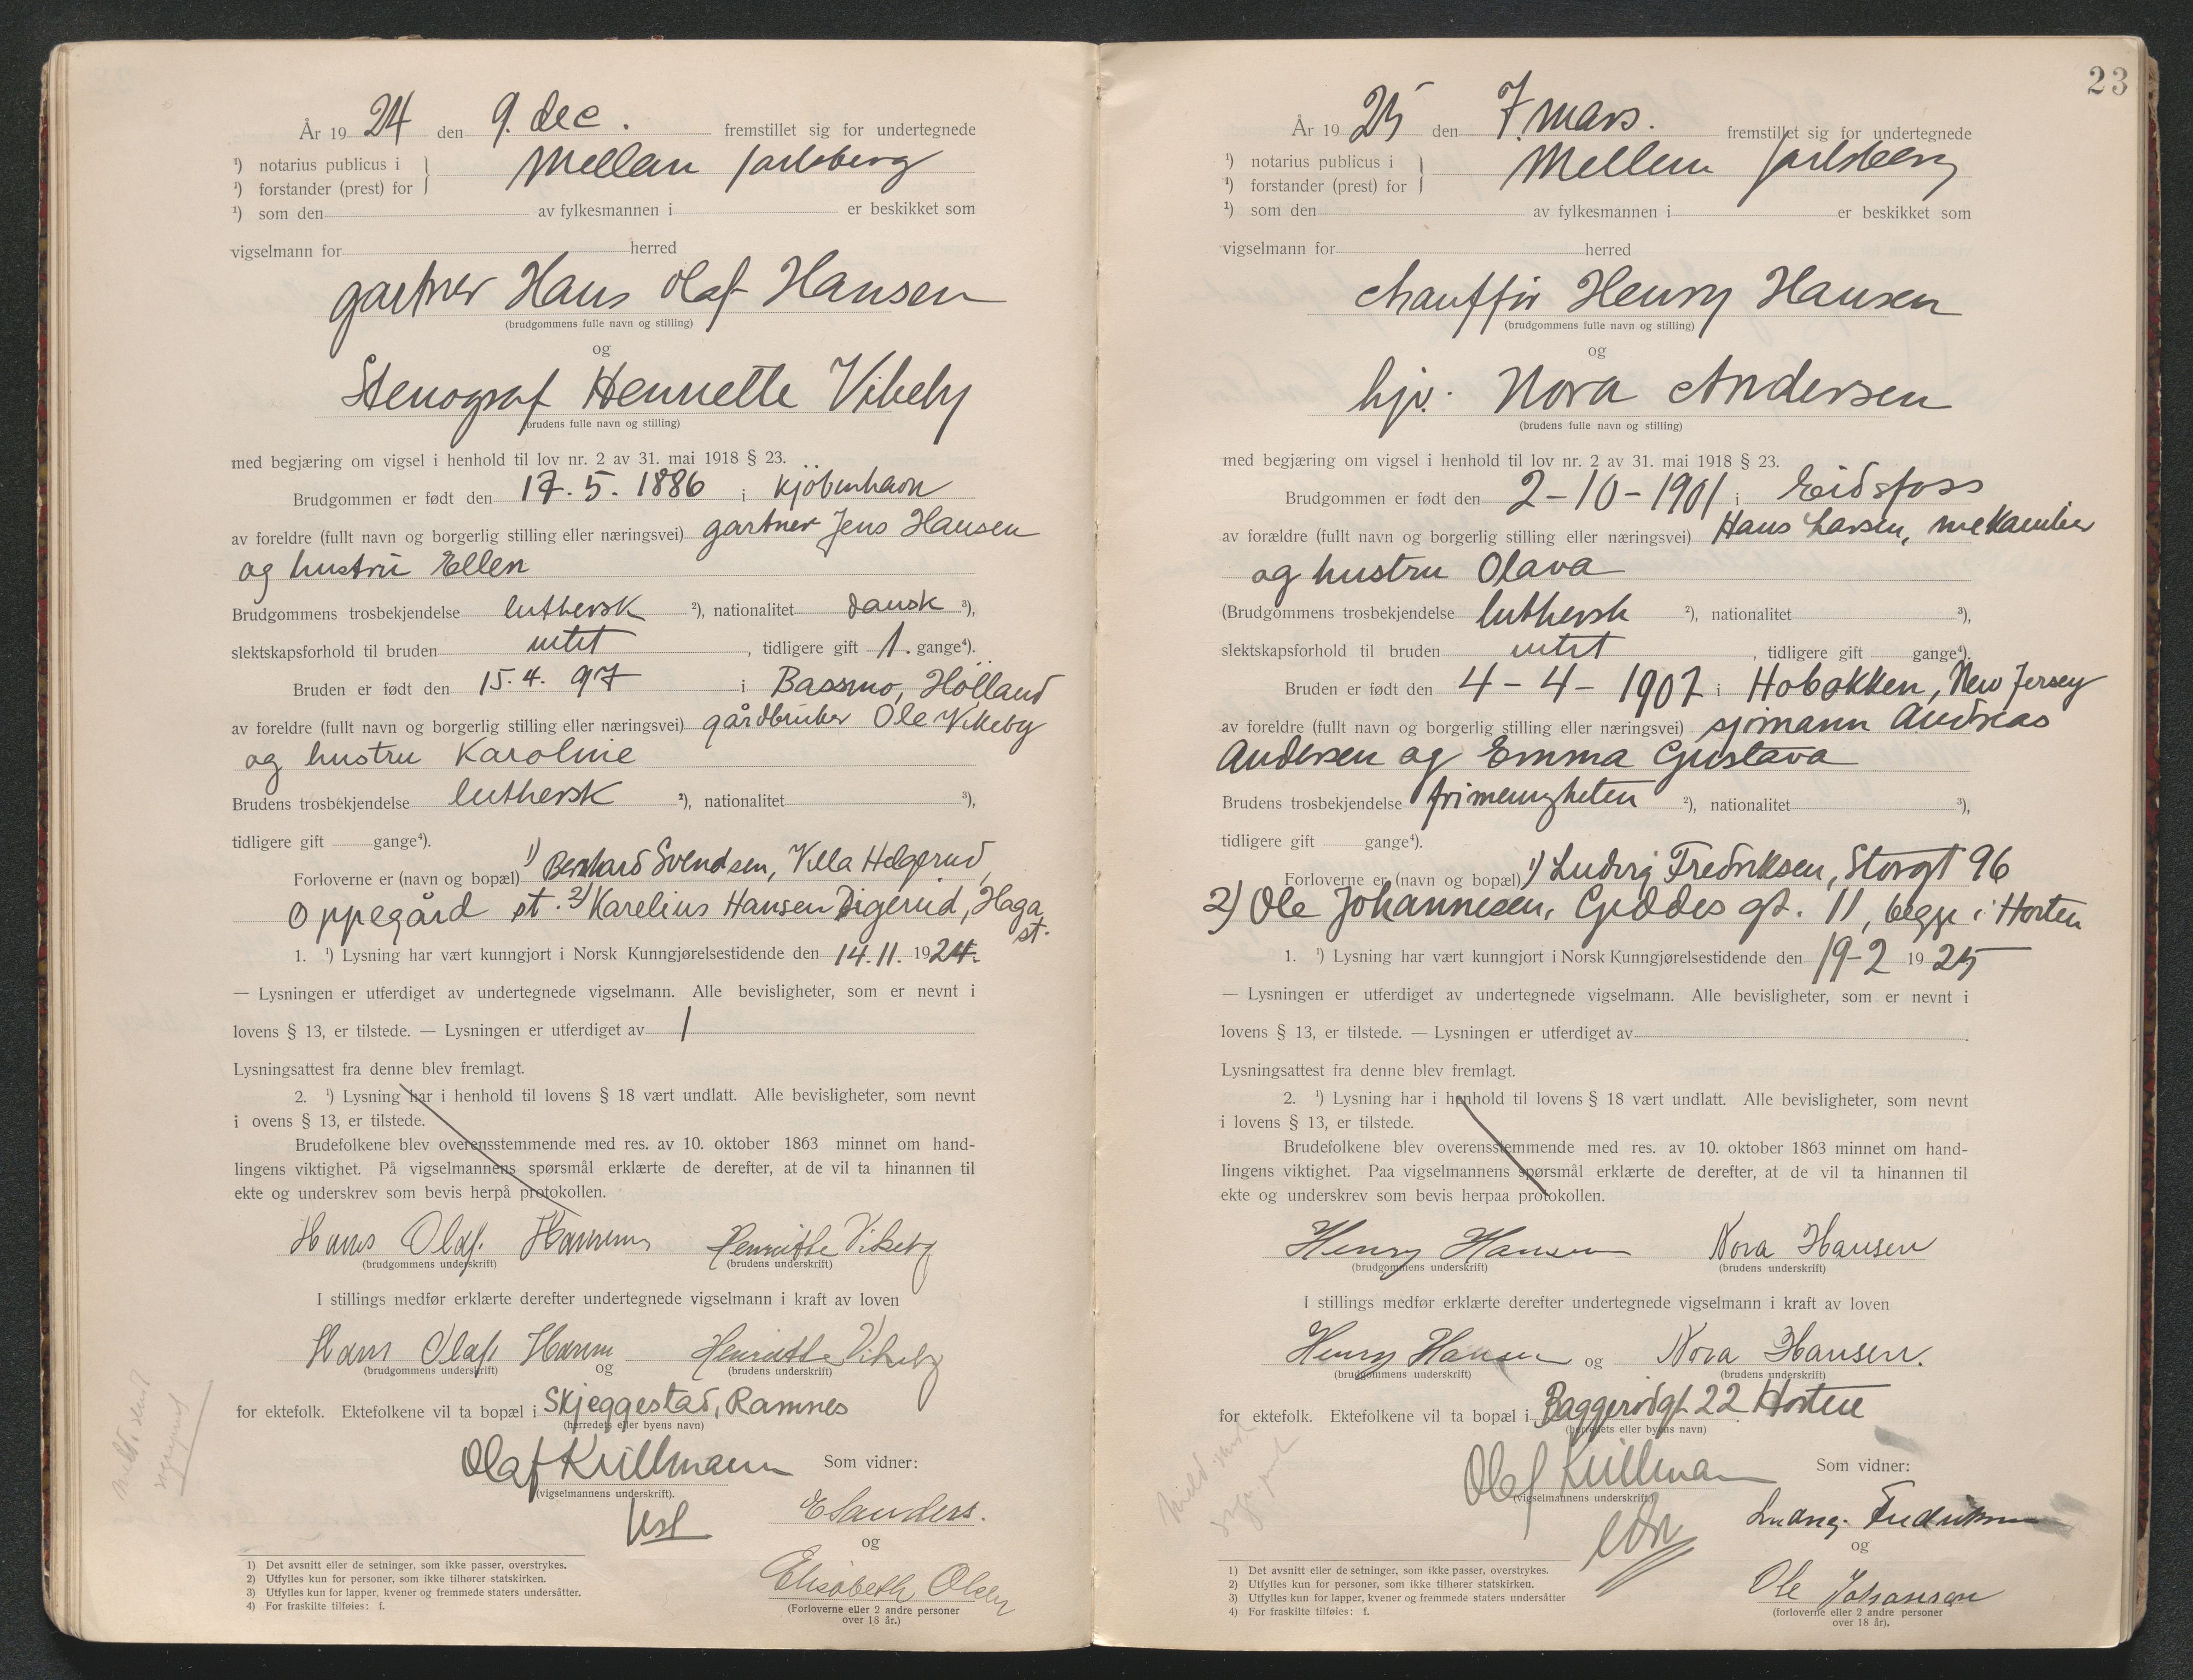 År 19 24 den 9. dec. fremstillet sig for undertegnede
¹) notarius publicus i } Mellem Jarlsberg
¹) forstander (prest) for
¹) som den av fylkesmannen i er beskikket som
vigselmann for herred
gartner Hans Olaf Hansen
(brudgommens fulle navn og stilling)
og
Stenograf Henriette Vikeby
(brudens fulle navn og stilling)
med begjæring om vigsel i henhold til lov nr. 2 av 31. mai 1918 § 23.
Brudgommen er født den 17. 5. 1886 i Kjöbenhavn
av foreldre (fullt navn og borgerlig stilling eller næringsvei) gartner Jens Hansen
og hustru Ellen
Brudgommens trosbekjendelse luthersk ²), nationalitet dansk ³),
slektskapsforhold til bruden intet , tidligere gift 1. gange⁴).
Bruden er født den 15. 4. 97 i Bassmo, Hölland
av foreldre (fullt navn og borgerlig stilling eller næringsvei) gårdbruker Ole Vikeby
og hustru Karoline
Brudens trosbekjendelse luthersk ²), nationalitet ³),
tidligere gift gange⁴).
Forloverne er (navn og bopæl) 1) Bernhard Svendsen, Villa Helgerud,
Oppegård st. 2) Karelius Hansen Digerud, Haga
st.
1. ¹) Lysning har vært kunngjort i Norsk Kunngjørelsestidende den 14. 11. 1924.
— Lysningen er utferdiget av undertegnede vigselmann. Alle bevisligheter, som er nevnt i
lovens § 13, er tilstede. — Lysningen er utferdiget av
Lysningsattest fra denne blev fremlagt.
2. ¹) Lysning har i henhold til lovens § 18 vært undlatt. Alle bevisligheter, som nevnt
i ovens § 13, er tilstede.
Brudefolkene blev overensstemmende med res. av 10. oktober 1863 minnet om hand-
lingens viktighet. På vigselmannens spørsmål erklærte de derefter, at de vil ta hinannen til
ekte og underskrev som bevis herpå protokollen.
Hans Olaf Hansen Henriette Vikeby
(brudgommens underskrift) (brudens underskrift)
I stillings medfør erklærte derefter undertegnede vigselmann i kraft av loven
Hans Olaf Hansen og Henriette Vikeby
(brudgommens underskrift) (brudens underskrift)
for ektefolk. Ektefolkene vil ta bopæl i Skjeggestad, Ramnes
(herredets eller byens navn)
Olaf Krillmann Som vidner:
(vigselmannens underskrift).
E Sanders.
og
Elisabeth Olsen
(Forloverne eller 2 andre personer
over 18 år.)
1) Det avsnitt eller de setninger, som ikke passer, overstrykes.
2) Utfylles kun for personer, som ikke tilhører statskirken.
3) Utfylles kun for lapper, kvener og fremmede staters undersåtter.
4) For fraskilte tilføies: f.
23
År 19 25 den 7. mars. fremstillet sig for undertegnede
¹) notarius publicus i } Mellem Jarlsberg
¹) forstander (prest) for
¹) som den av fylkesmannen i er beskikket som
vigselmann for herred
chauffør Henry Hansen
(brudgommens fulle navn og stilling)
og
hjv. Nora Andersen
(brudens fulle navn og stilling)
med begjæring om vigsel i henhold til lov nr. 2 av 31. mai 1918 § 23.
Brudgommen er født den 2-10-1901 i Eidsfoss
av forældre (fullt navn og borgerlig stilling eller næringsvei) Hans Larsen, mekaniker
og hustru Olava
(Brudgommens trosbekjendelse luthersk ²), nationalitet ³),
slektskapsforhold til bruden intet , tidligere gift gange⁴).
Bruden er født den 4-4-1907 i Hobokken, New Jersey
av foreldre (fullt navn og borgerlig stilling eller næringsvei) sjömann Andreas
Andersen og Emma Gustava
Brudens trosbekjendelse frimenigheten ²), nationalitet ³),
tidligere gift gange⁴).
Forloverne er (navn og bopæl) 1) Ludvig Fredriksen, Storgt 96
2) Ole Johannesen, Geddes gt. 11, begge i Horten
1. ¹) Lysning har vært kunngjort i Norsk Kunngjørelsestidende den 19-2 19 25
— Lysningen er utferdiget av undertegnede vigselmann. Alle bevisligheter, som er nevnt i
lovens § 13, er tilstede. — Lysningen er utferdiget av
Lysningsattest fra denne blev fremlagt.
2. ¹) Lysning har i henhold til lovens § 18 vært undlatt. Alle bevisligheter, som nevnt
i lovens § 13, er tilstede.
Brudefolkene blev overensstemmende med res. av 10. oktober 1863 minnet om hand-
lingens viktighet. Paa vigselmannens spørsmål erklærte de derefter, at de vil ta hinannen til
ekte og underskrev som bevis herpaa protokollen.
Henry Hansen Nora Hansen
(brudgommens underskrift) (brudens underskrift)
I stillings medfør erklærte derefter undertegnede vigselmann i kraft av loven
Henry Hansen og Nora Hansen.
(brudgommens underskrift) (brudens underskrift)
for ektefolk. Ektefolkene vil ta bopæl i Baggerödgt 22 Horten
(herredets eller byens navn)
Olaf Krillmann Som vidner:
(vigselmannens underskrift.)
Ludvig Fredriksen
og
Ole Johansen
(forloverne eller 2 andre personer
over 18 år).
1) Det avsnitt eller de setninger, som ikke passer, overstrykes.
2) Utfylles kun for personer, som ikke tilhører statskirken.
3) Utfylles kun for lapper, kvener og fremmede staters undersåtter
4) For fraskilte tilføies: f.